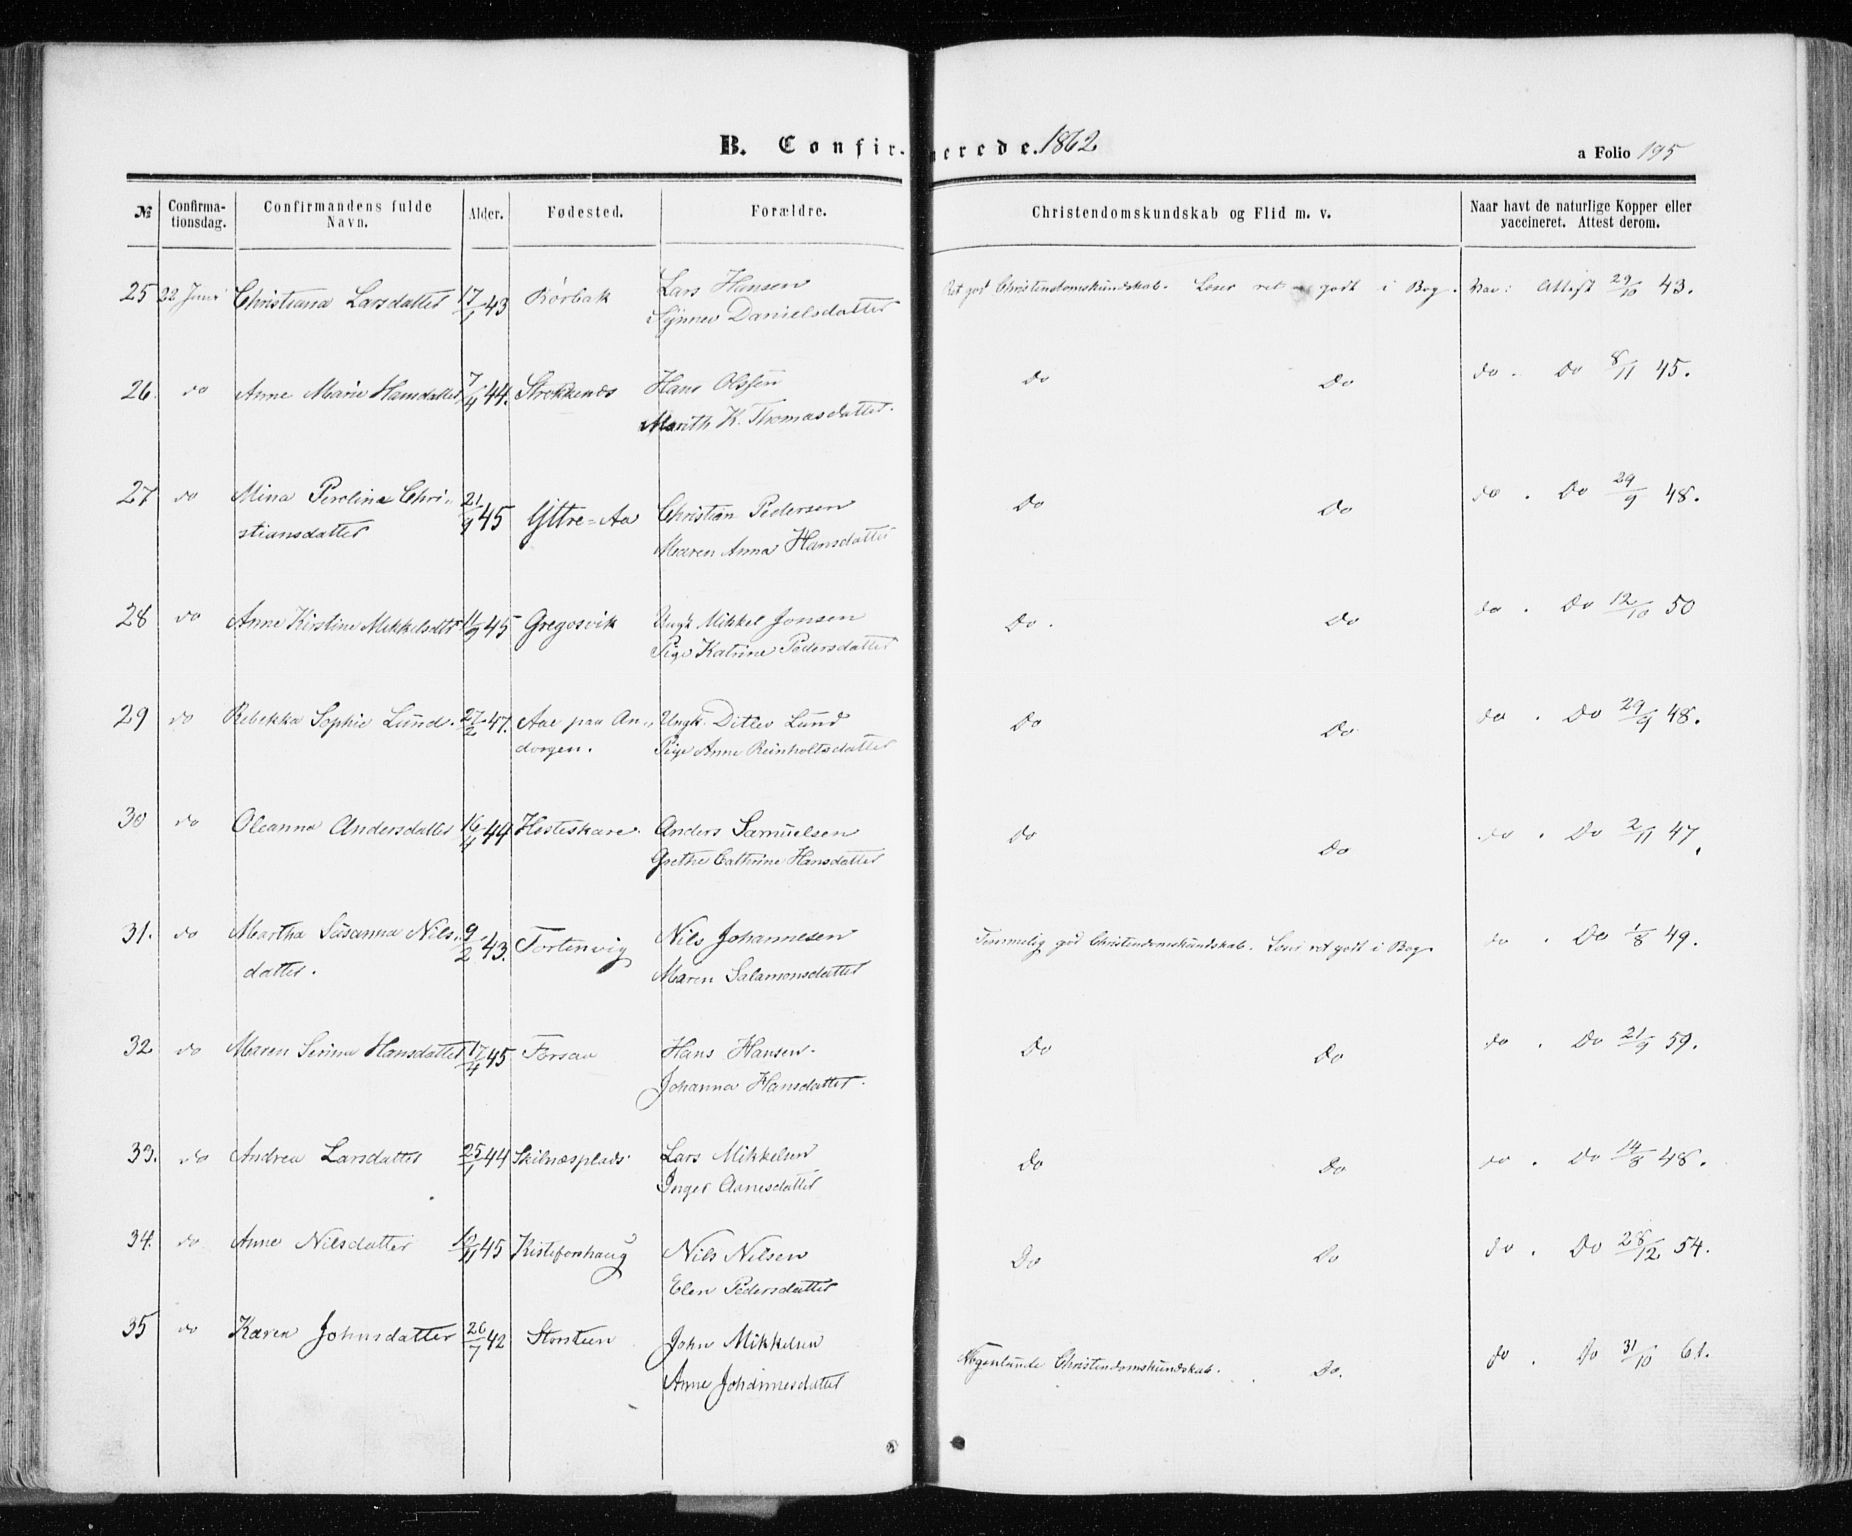 B. Confir- merede. 1862
a Folio 195
№ Confirma-tionsdag. Confirmandens fulde Navn. Alder. Fødested. Forældre. Christendomskundskab og Flid m. v. Naar havt de naturlige Kopper eller vaccineret. Attest derom.
25 22 Juni Christiana Larsdatter 17/1 43 Rørbak Lars Hansen Ret god Christendomskundskab. Læser ret godt i Bog. Vac: Attest 29/10 43.
Synnev Danielsdatter
26. do Anne Marie Hansdatter 7/4 44. Strokkenæs Hans Olsen Do Do do. Do 8/11 45.
Marith K. Thomasdatter.
27 do Mina Perolina Chri- 21/9 45 Yttre-Aa Christian Pedersen Do Do do. Do 29/9 48.
stiansdatter Maren Anna Hansdatter
28 do Anne Kirstine Mikkelsdtr 11/9 45 Gregosvik Ungk. Mikkel Jonsen Do. Do do. Do 12/10 50
Pige Katrine Pedersdatter
29 do Rebekka Sophie Lund. 27/2 47. Aae paa An- Ungk. Ditlev Lund Do Do do. Do 29/9 48.
dorgen. Pige Anne Reinholtsdatter
30 do Oleanna Andersdatter 16/4 49 Hesteskare. Anders Samuelsen Do Do do. Do 2/11 47.
Grethe Cathrine Hansdatter
31. do Martha Susanna Nils- 9/2 43. Tortenvig Nils Johannesen Temmelig god Christendomskundskab. Læser ret godt i Bog. do. Do 1/8 49.
datter. Maren Salamonsdatter
32. do Maren Serina Hansdatter 17/4 45 Forsaa Hans Hansen. Do Do do. Do 21/9 59.
Johanna Hansdatter.
33. do Andrea Larsdatter 25/1 44 Skilnæsplads Lars Mikkelsen Do Do do. Do 14/8 48.
Inger Arnesdatter
34. do Anne Nilsdatter 10/11 45 Kistefoshaug Nils Nilsen Do Do do. Do 28/12 54.
Elen Pedersdatter
35 do Karen Johnsdatter 26/7 42 Storsteen John Mikkelsen Nogenlunde Christendomskundskab. Do. do. Do 31/10 61.
Anne Johannesdatter